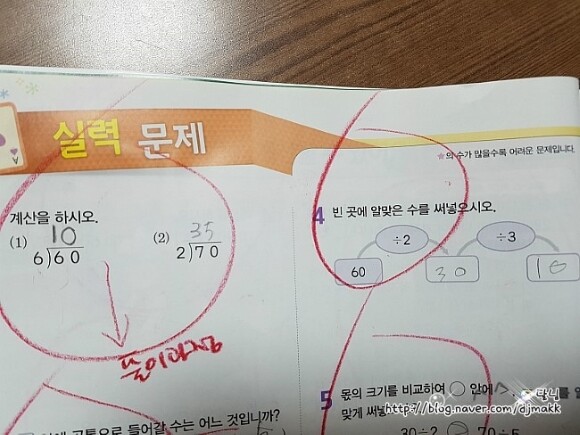 실력 문제
★의 수가 많을수록 어려운 문제입니다.
계산을 하시오.
(1) 10
6)60
(2) 35
2)70
4 빈 곳에 알맞은 수를 써넣으시오.
÷2 ÷3
60 30 10
5 몫의 크기를 비교하여 ○ 안에 >,
맞게 써넣
30÷2 ○ 70÷5
들어갈 수는 어느 것입니까?
http://blog.naver.com/djmakk